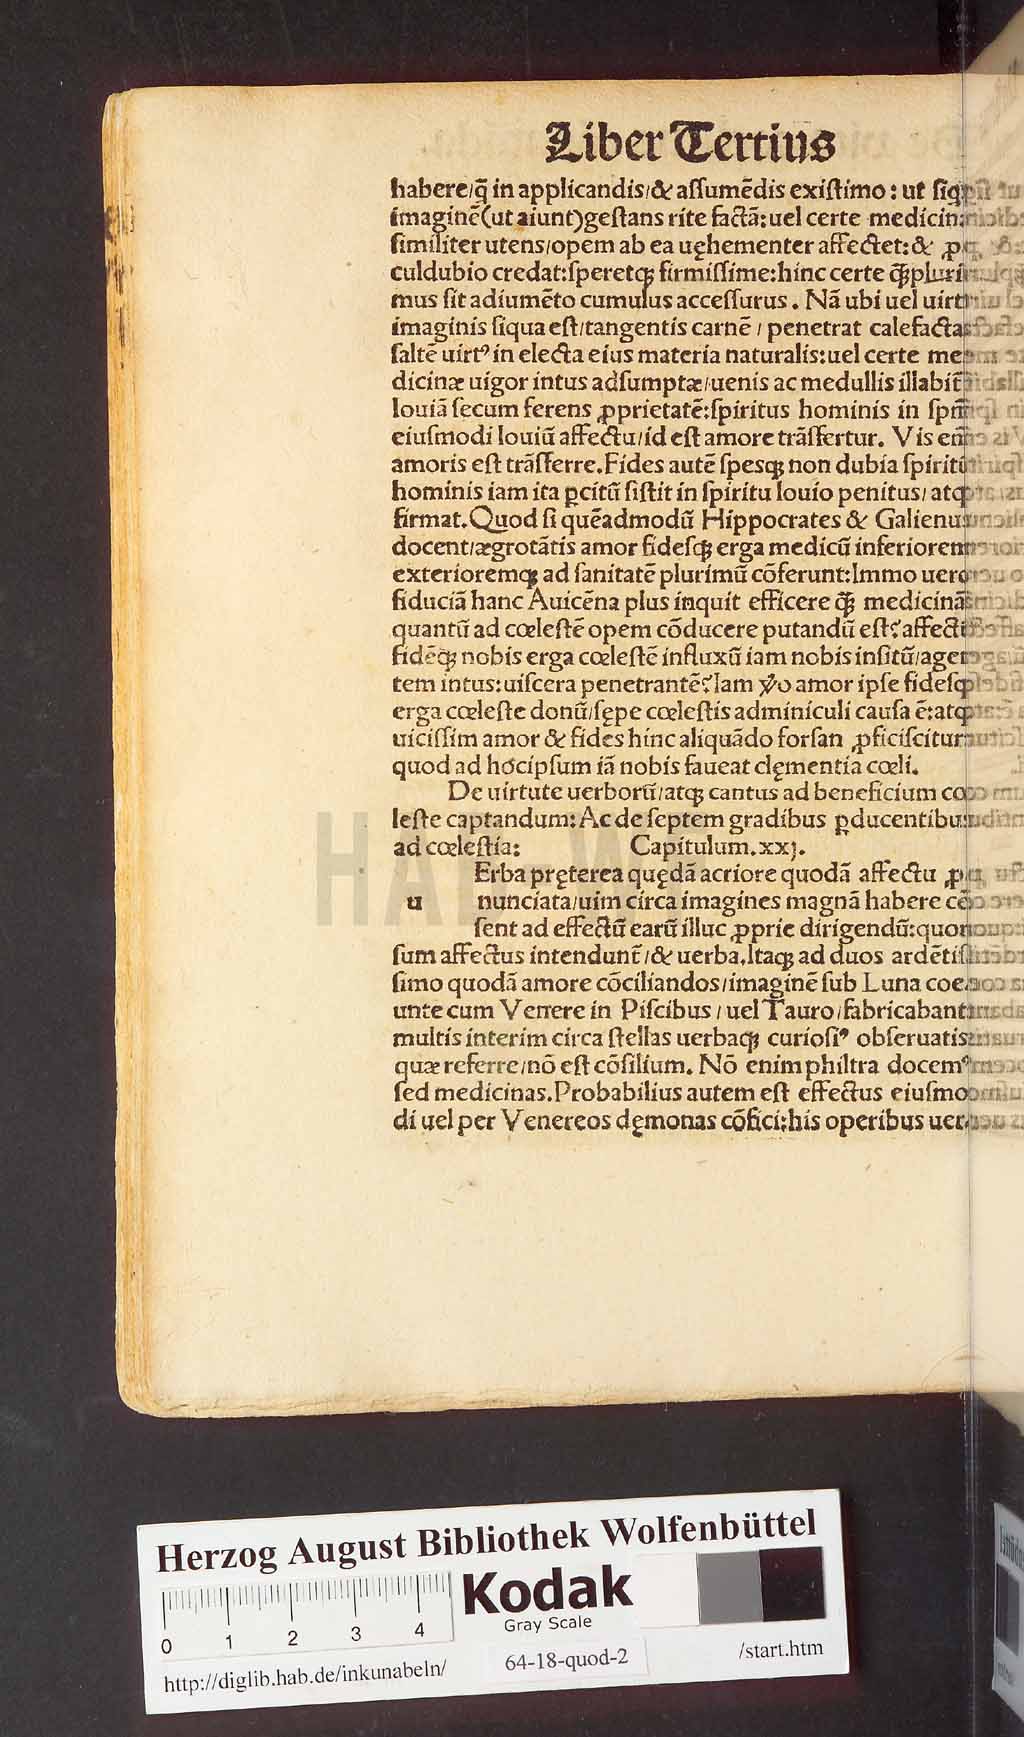 Liber Tertius
habere/q̃ in applicandis/& aſſumẽdis exiſtimo: ut
imaginẽ(ut aiunt)geſtans rite factã: uel certe
ſimiliter utens/opem ab ea uęhementer affectet: &
culdubio credat: ſperetqꝫ firmiſſime: hinc certe
mus ſit adiumẽto cumulus acceſſurus. Nã ubi uel
imaginis ſiqua eſt/tangentis carnẽ / penetrat
ſaltẽ uirtꝰ in electa eius materia naturalis: uel certe
dicinæ uigor intus adſumptæ/uenis ac medullis
Iouiã ſecum ferens ꝓprietatẽ: ſpiritus hominis in
eiuſmodi Iouiũ affectu/id eſt amore trãſfertur. Vis
amoris eſt trãſferre. Fides autẽ ſpesqꝫ non dubia
hominis iam ita ꝑcitũ ſiſtit in ſpiritu Iouio penitus/
firmat. Quod ſi quẽadmodũ Hippocrates &
docent/ægrotãtis amor fideſqꝫ erga medicũ
exterioremqꝫ ad ſanitatẽ plurimũ cõferunt: Immo
fiduciã hanc Auicẽna plus inquit efficere q̃ꝫ
quantũ ad cœleſtẽ opem cõducere putandũ eſt?
fidẽqꝫ nobis erga cœleſtẽ influxũ iam nobis inſitũ/
tem intus: uiſcera penetrantẽ? Iam ỽo amor ipſe
erga cœleſte donũ/ſępe cœleſtis adminiculi cauſa ẽ:
uiciſſim amor & fides hinc aliquãdo forſan
quod ad hocipſum iã nobis faueat clęmentia cœli.
De uirtute uerborũ/atqꝫ cantus ad beneficium
leſte captandum: Ac de ſeptem gradibus
ad cœleſtia: Capitulum.xxj.
Erba pręterea quędã acriore quodã affectu
u nunciata/uim circa imagines magnã habere
ſent ad effectũ earũ illuc ꝓprie dirigendũ:
ſum affectus intendunt̃/& uerba. Itaqꝫ ad duos
ſimo quodã amore cõciliandos/imaginẽ ſub Luna
unte cum Venere in Piſcibus / uel Tauro/
multis interim circa ſtellas uerbaqꝫ curioſiꝰ
quæ referre/nõ eſt cõſilium. Nõ enim philtra docemꝰ
ſed medicinas. Probabilius autem eſt effectus
di uel per Venereos dęmonas cõfici: his operibus
HAB-W
Herzog August Bibliothek Wolfenbüttel
Kodak
Gray Scale
0 1 2 3 4
http://diglib.hab.de/inkunabeln/ 64-18-quod-2 /start.htm